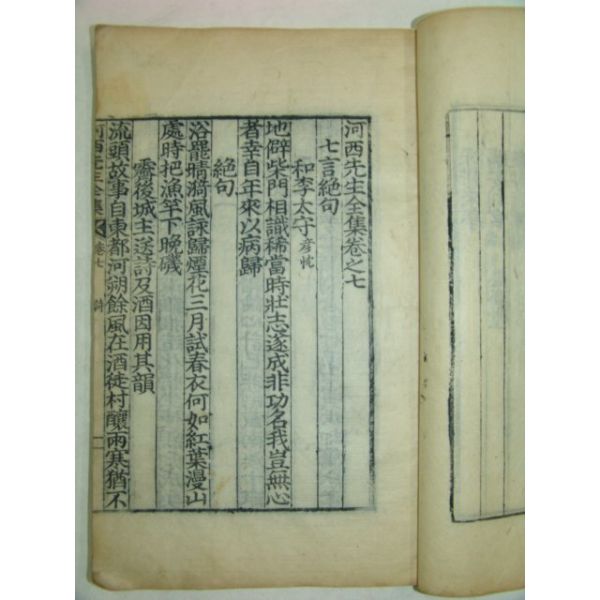 河西先生全集卷之七
七言絶句
和李太守彦忱
地僻柴門相識稀當時壯志遂成非功名我豈無心
者幸自年來以病歸
絶句
浴罷晴漪風詠歸煙花三月試春衣何如紅葉漫山
處時把漁竿下晚磯
霽後城主送詩及酒因用其韻
流頭故事自東都河朔餘風在酒徒村釀雨寒猶不
河西先生全集 卷七 詩 一